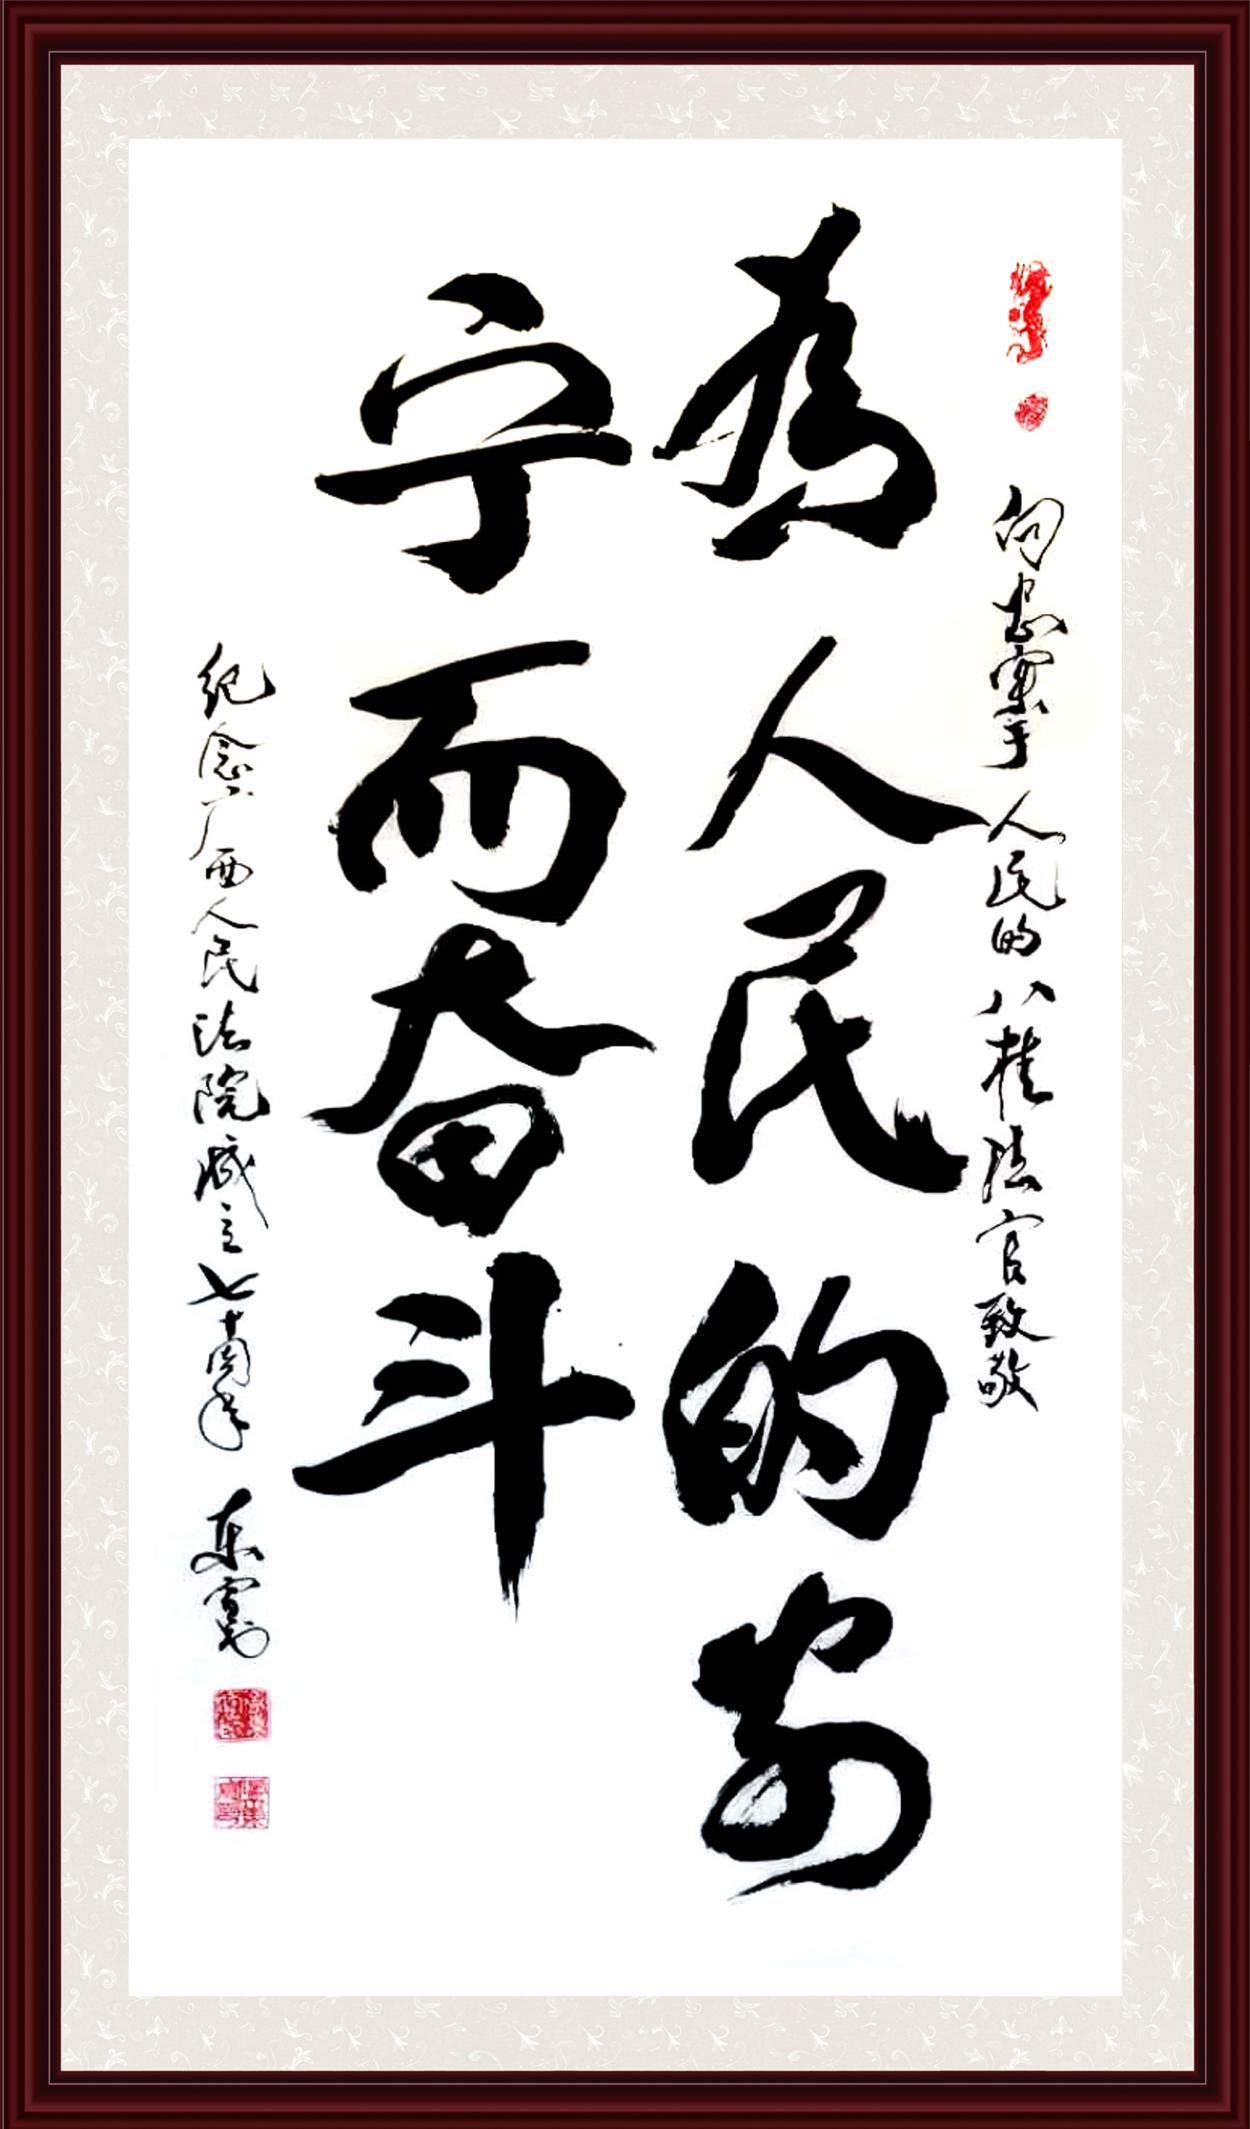 向忠实于人民的八桂法官致敬
為人民的安
宁而奋斗
纪念广西人民法院成立七十周年